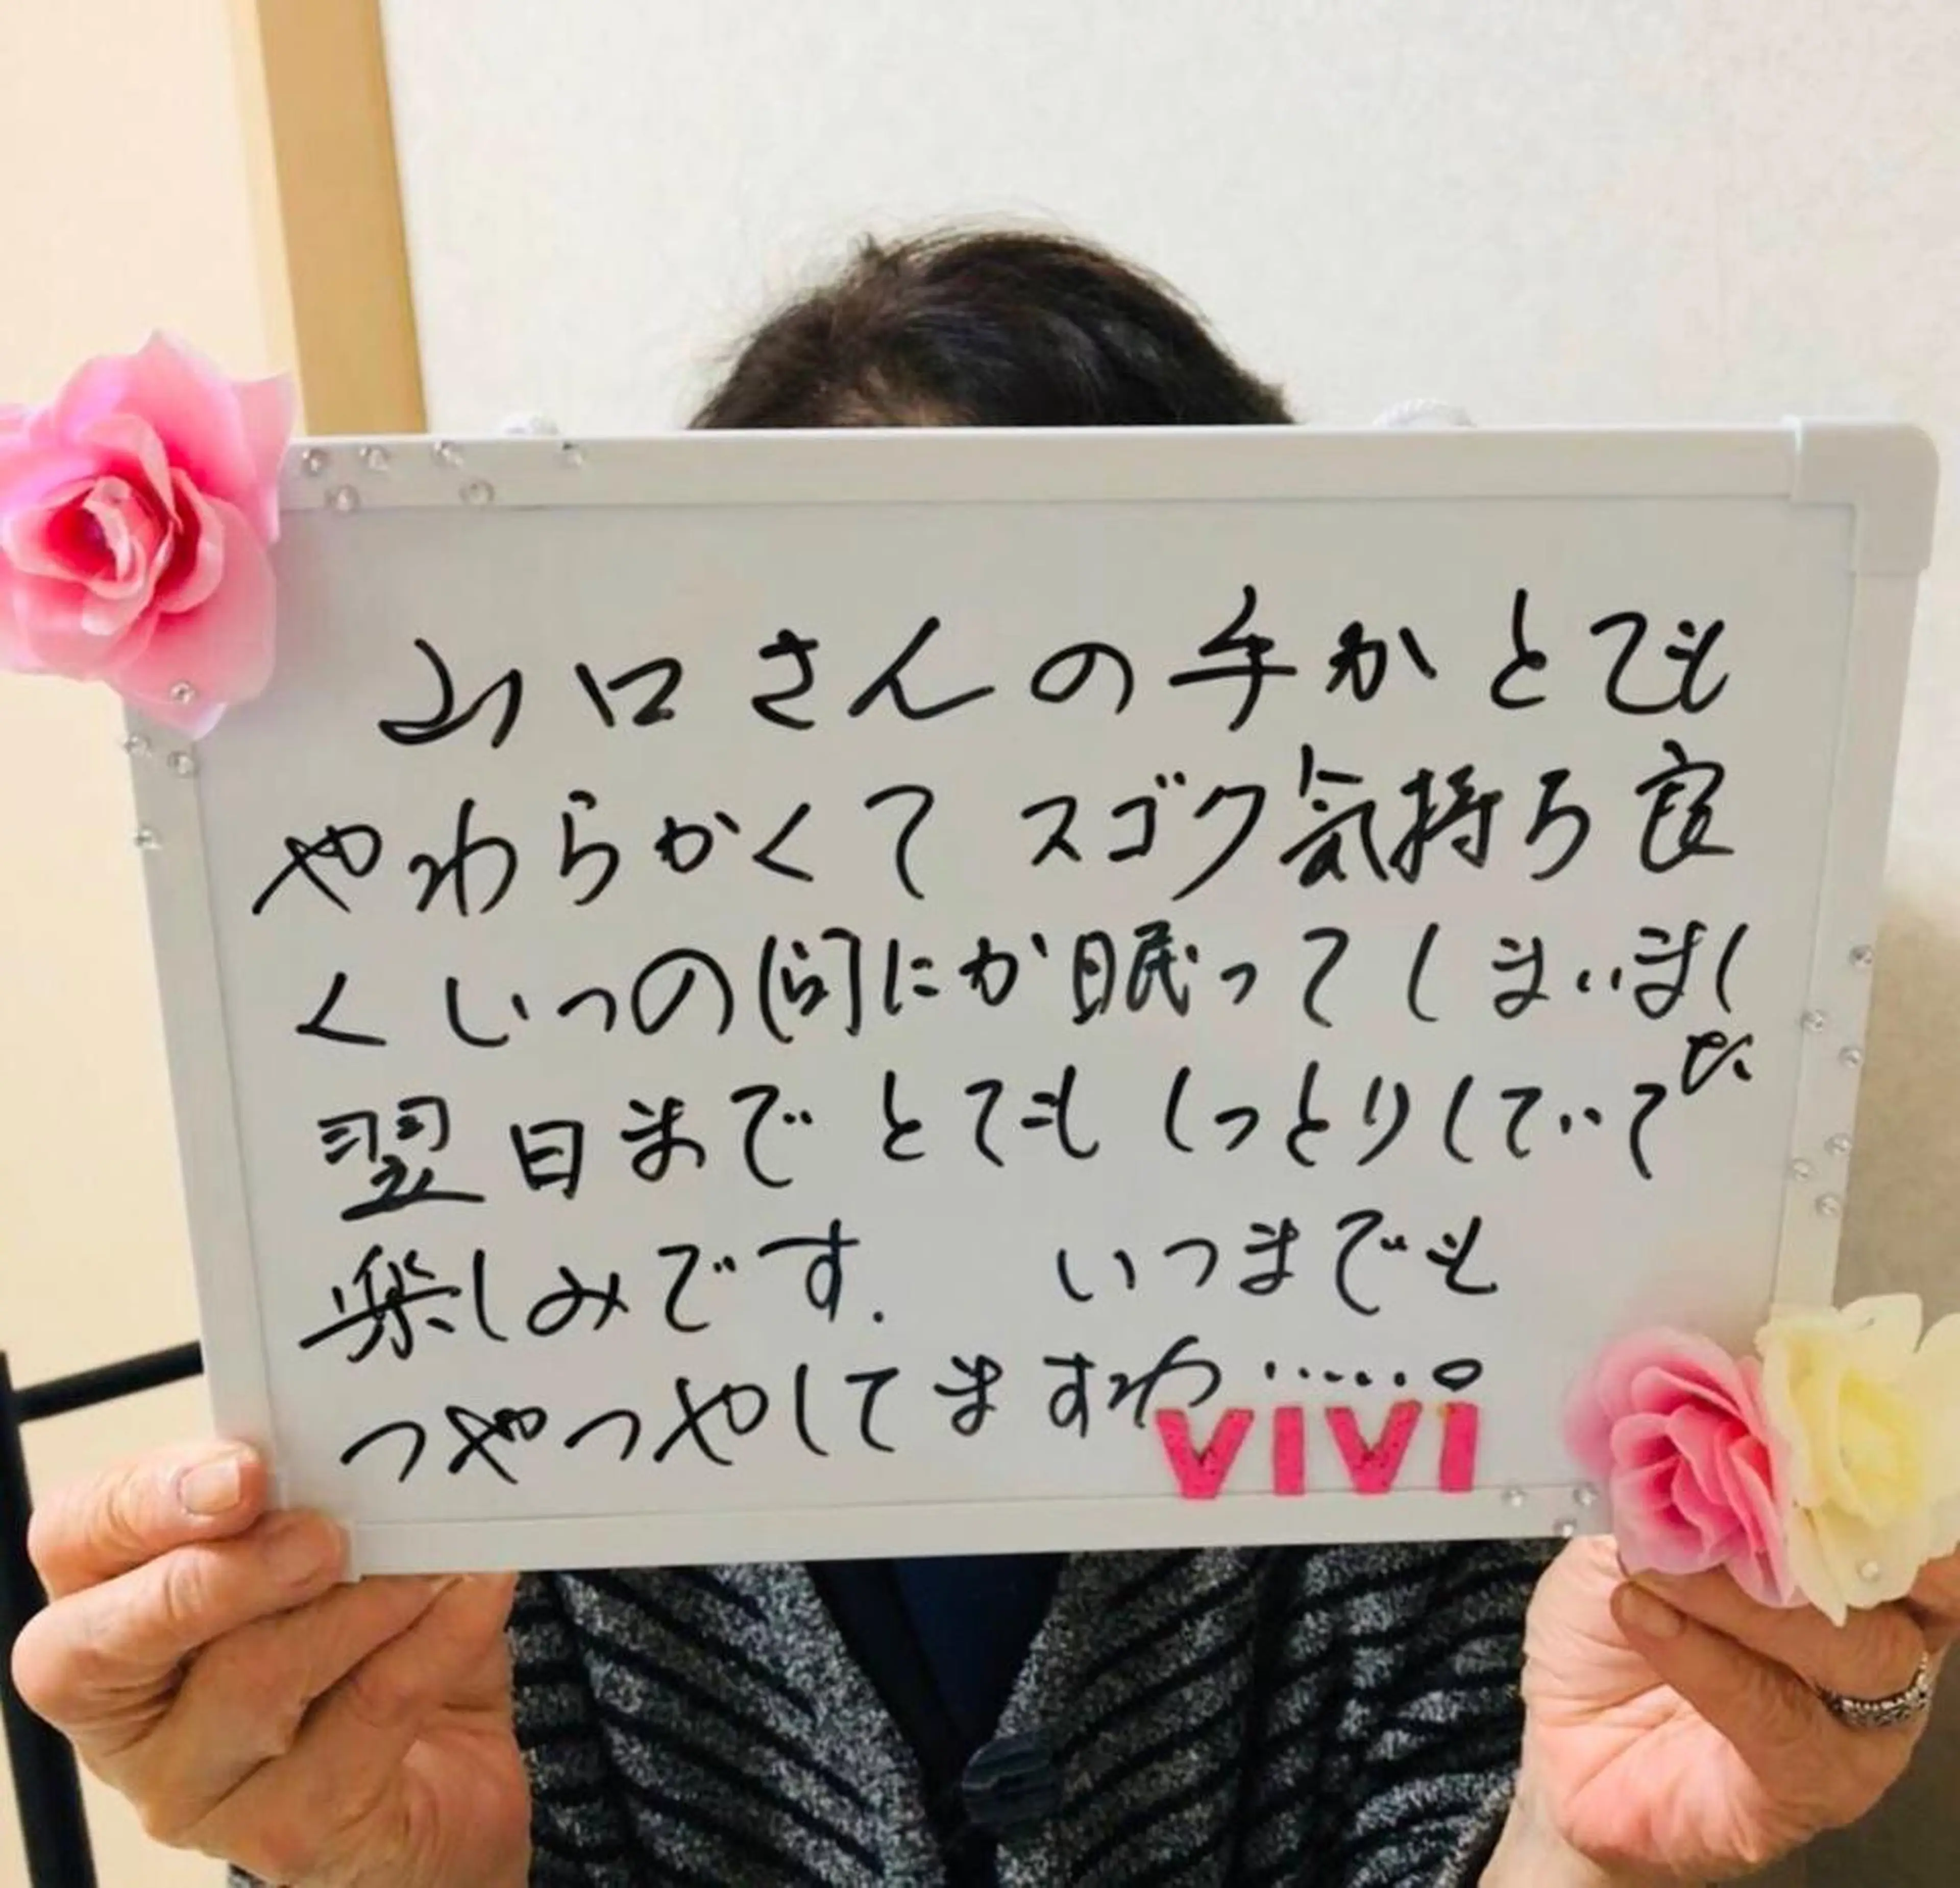 山口さんの手がとても
やわらかくて スゴク気持ち良
くいつの間にか眠ってしまいまし
た、
翌日まで とても しっとりしていて
楽しみです. いつまでも
つやつやしてますわ……。
VIVI